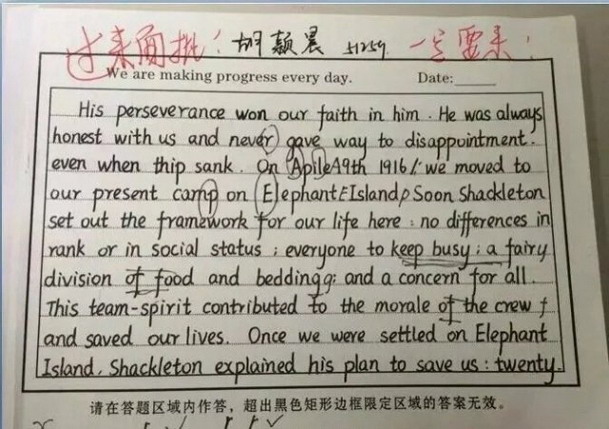 过来面批! 胡颖晨 51259 一定要来!
We are making progress every day. Date:
His perseverance won our faith in him. He was always
honest with us and never gave way to disappointment.
even when thip sank. On Apile 19th 1916, we moved to
our present camp on Elephant Island. Soon Shackleton
set out the framework for our life here: no differences in
rank or in social status; everyone to keep busy; a fairy
division of food and bedding; and a concern for all.
This team-spirit contributed to the morale of the crew
and saved our lives. Once we were settled on Elephant
Island, Shackleton explained his plan to save us: twenty.
请在答题区域内作答,超出黑色矩形边框限定区域的答案无效。